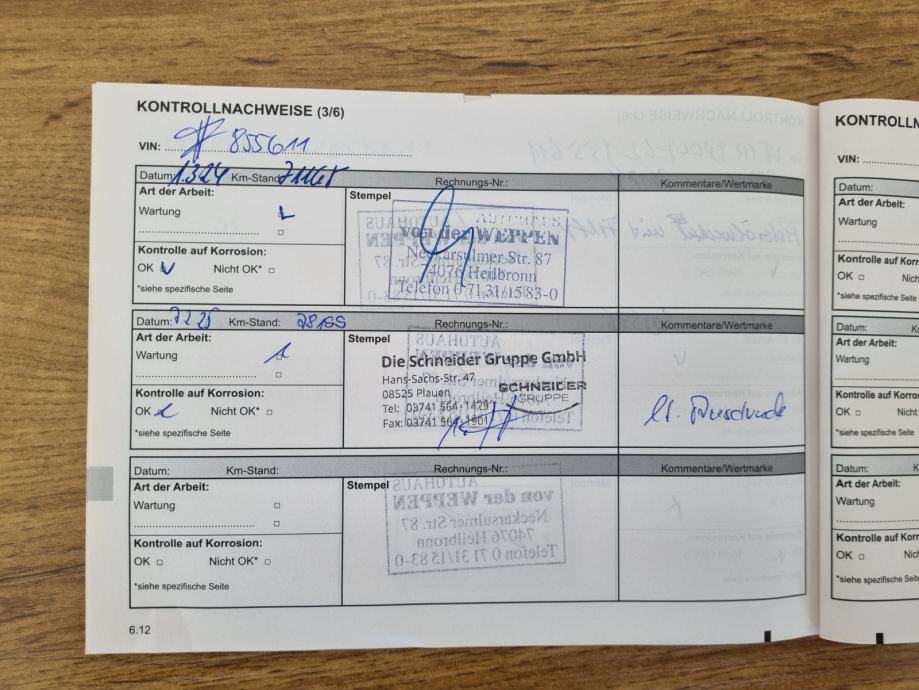 KONTROLLNACHWEISE (3/6)
VIN: 855611
Datum: 1.3.24 Km-Stand: Rechnungs-Nr.: Kommentare/Wertmarke
Art der Arbeit:
Stempel
Wartung
AUTOHAUS
von der WEPPEN
Neckarsulmer Str. 87
74076 Heilbronn
Telefon 0 71 31/15 83-0
Kontrolle auf Korrosion:
OK Nicht OK*
*siehe spezifische Seite
Datum: Km-Stand: Rechnungs-Nr.: Kommentare/Wertmarke
Art der Arbeit:
Stempel
Wartung
Die Schneider Gruppe GmbH
Hans-Sachs-Str. 47
08525 Plauen
Tel: 03741 564-1429
Fax: 03741 564-1901
SCHNEIDER
GRUPPE
Kontrolle auf Korrosion:
OK Nicht OK*
*siehe spezifische Seite
Datum: Km-Stand: Rechnungs-Nr.: Kommentare/Wertmarke
Art der Arbeit:
Stempel
Wartung
Kontrolle auf Korrosion:
OK Nicht OK*
*siehe spezifische Seite
6.12
KONTROLLN
VIN:
Datum:
Art der Arbeit:
Wartung
Kontrolle auf Korr
OK Nich
*siehe spezifische Seite
Datum: K
Art der Arbeit:
Wartung
Kontrolle auf Korr
OK Nich
*siehe spezifische Seite
Datum: K
Art der Arbeit:
Wartung
Kontrolle auf Korr
OK Nich
*siehe spezifische Seite